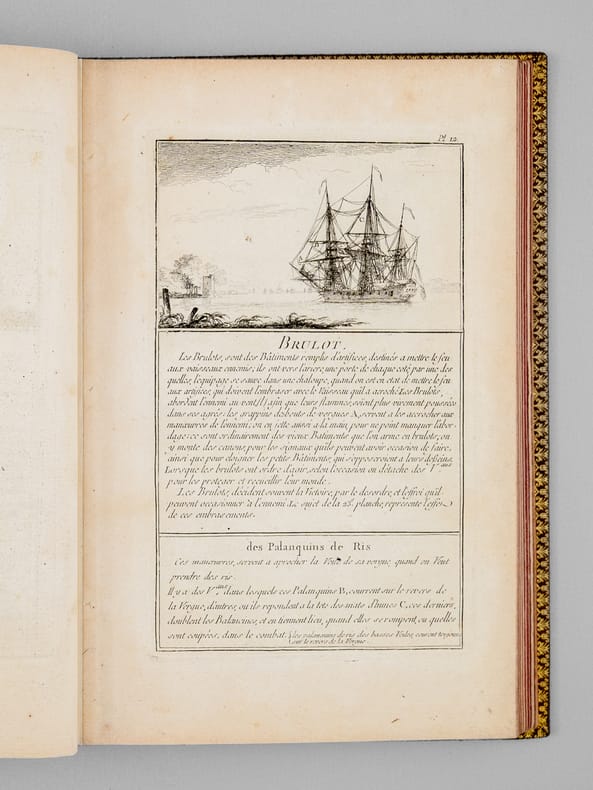 Pl 12
BRULOT.
Les Brulots, sont des Bâtiments remplis d'artifices, destinés a mettre le feu
aux vaisseaux ennemis; ils ont vers l'arriere une porte de chaque coté par une des
quelles, l'equipage se sauve dans une chaloupe, quand on est en etat de mettre le feu
aux artifices qui doivent l'embraser avec le Vaisseau qu'il a acroché Les Brulots,
abordent l'ennemi au vent, afin que leurs flammes, soient plus vivement poussées
dans ses agrés: les grappins des bouts de vergues A, servent a les accrocher aux
manœuvres de l'ennemi; on en jette aussi a la main, pour ne point manquer l'abor-
dage: ce sont ordinairement des vieux Batiments que l'on arme en brulots; on
y monte des canons, pour les signaux qu'ils peuvent avoir occasion de faire,
ainsi que pour eloigner les petits Bâtiments, qui s'opposeroient a leurs desseins.
Lorsque les brulots ont ordre d'agir, selon l'occasion on détache des V.aux
pour les proteger et recueillir leur monde.
Les Brulots, décident souvent la Victoire, par le desordre, et l'effroi qu'il
peuvent occasionner à l'ennemi Le sujet de la 23e. planche, représente l'effet
de ces embrasements.
des Palanquins de Ris
Ces manœuvres, servent a aprocher la Voile de sa vergue, quand on Veut
prendre des ris.
Il y a des V.aux dans lesquels ces Palanquins B, courrent sur le revers de
la Vergue, d'autres, ou ils repondent a la tete des mats d'hunes C, ces derniers,
doublent les Balancines, et en tiennent lieu, quand elles se rompent, ou quelles
sont coupées, dans le combat. les palanquins de ris des basses Voiles, courent toujours
sur le revers de la Vergue